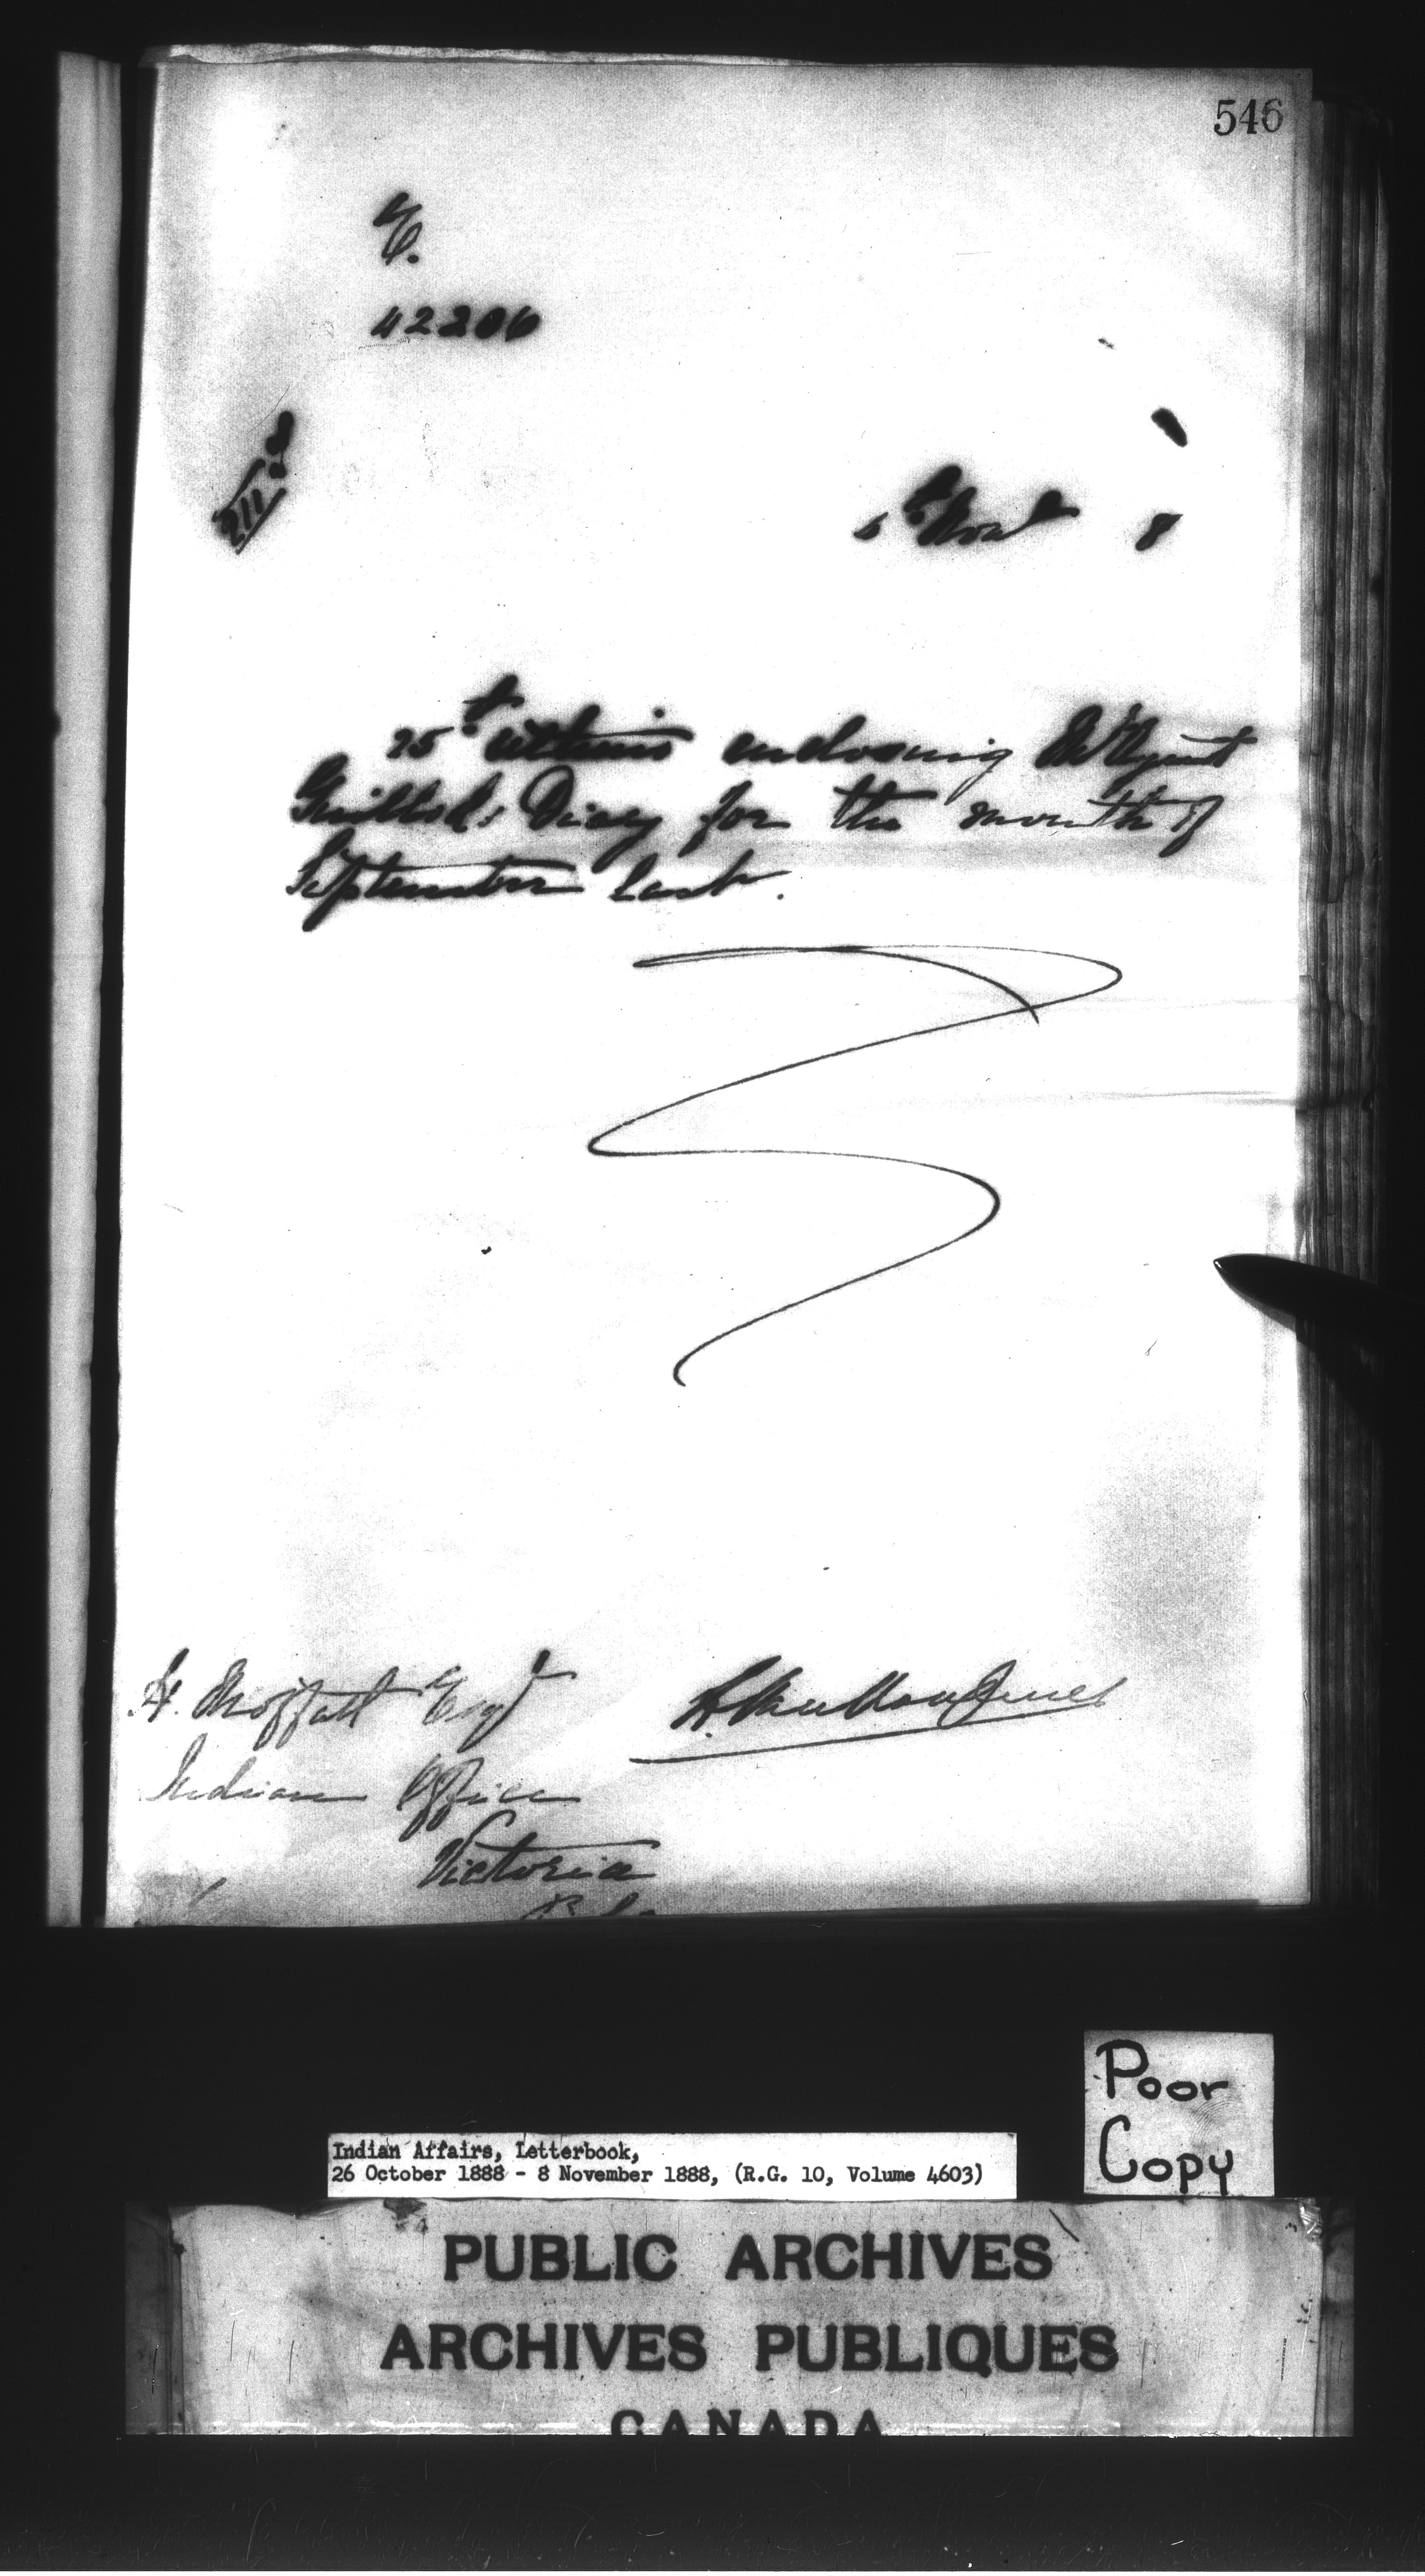 546
E.
42206
Nov 8
25th ultimo enclosing Mr Agent
Guillod's Diary for the month of
September last.
H. Moffatt Esqr
L. Vankoughnet
Indian Office
Victoria
B.C.
Poor
Copy
Indian Affairs, Letterbook,
26 October 1888 - 8 November 1888, (R.G. 10, Volume 4603)
PUBLIC ARCHIVES
ARCHIVES PUBLIQUES
CANADA